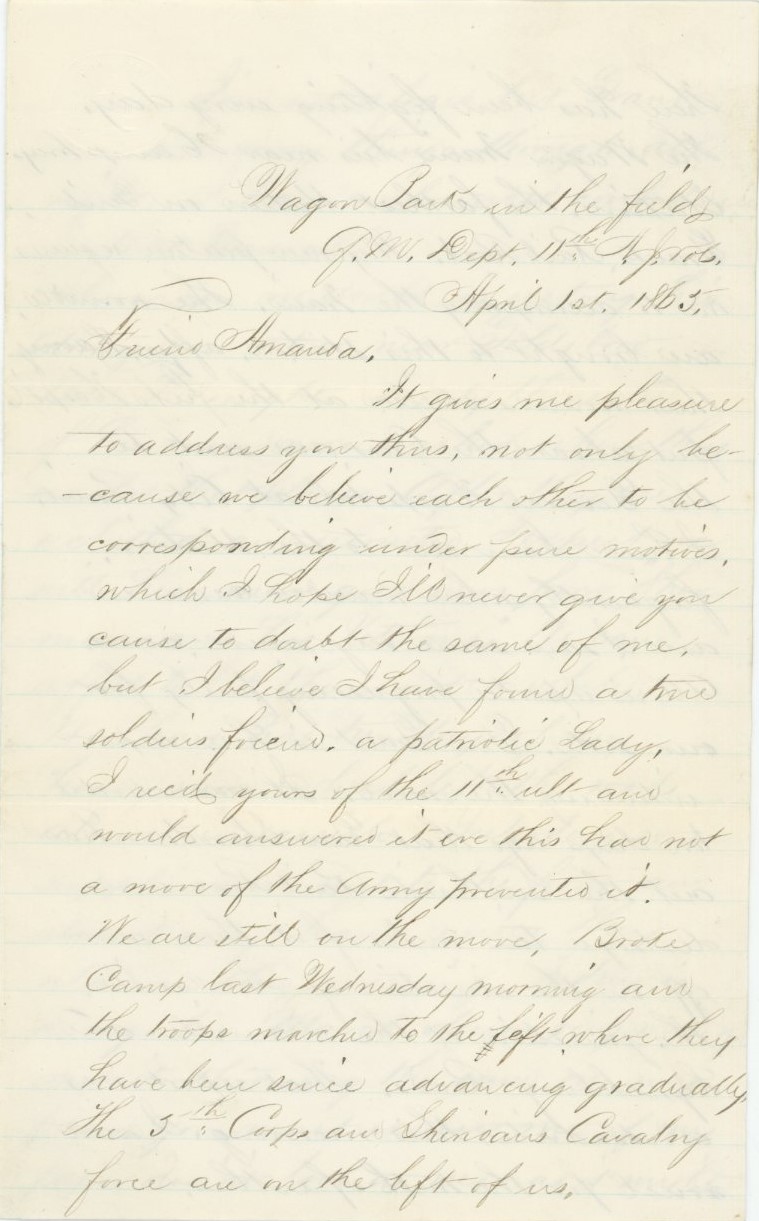 Wagon Park in the field
Q.M. Dept. 11th N.J. Vols.
April 1st. 1865.
Friend Amanda,
It gives me pleasure
to address you thus, not only be-
-cause we believe each other to be
corresponding under pure motives,
which I hope I'll never give you
cause to doubt the same of me,
but I believe I have found a true
soldiers friend. a patriotic Lady,
I rec'd yours of the 11th ult and
would answered it ere this had not
a move of the Army prevented it.
We are still on the move, Broke
Camp last Wednesday morning and
the troops marched to the left where they
have been since advancing gradually,
The 5th Corps and Sheridans Cavalry
force are on the left of us,